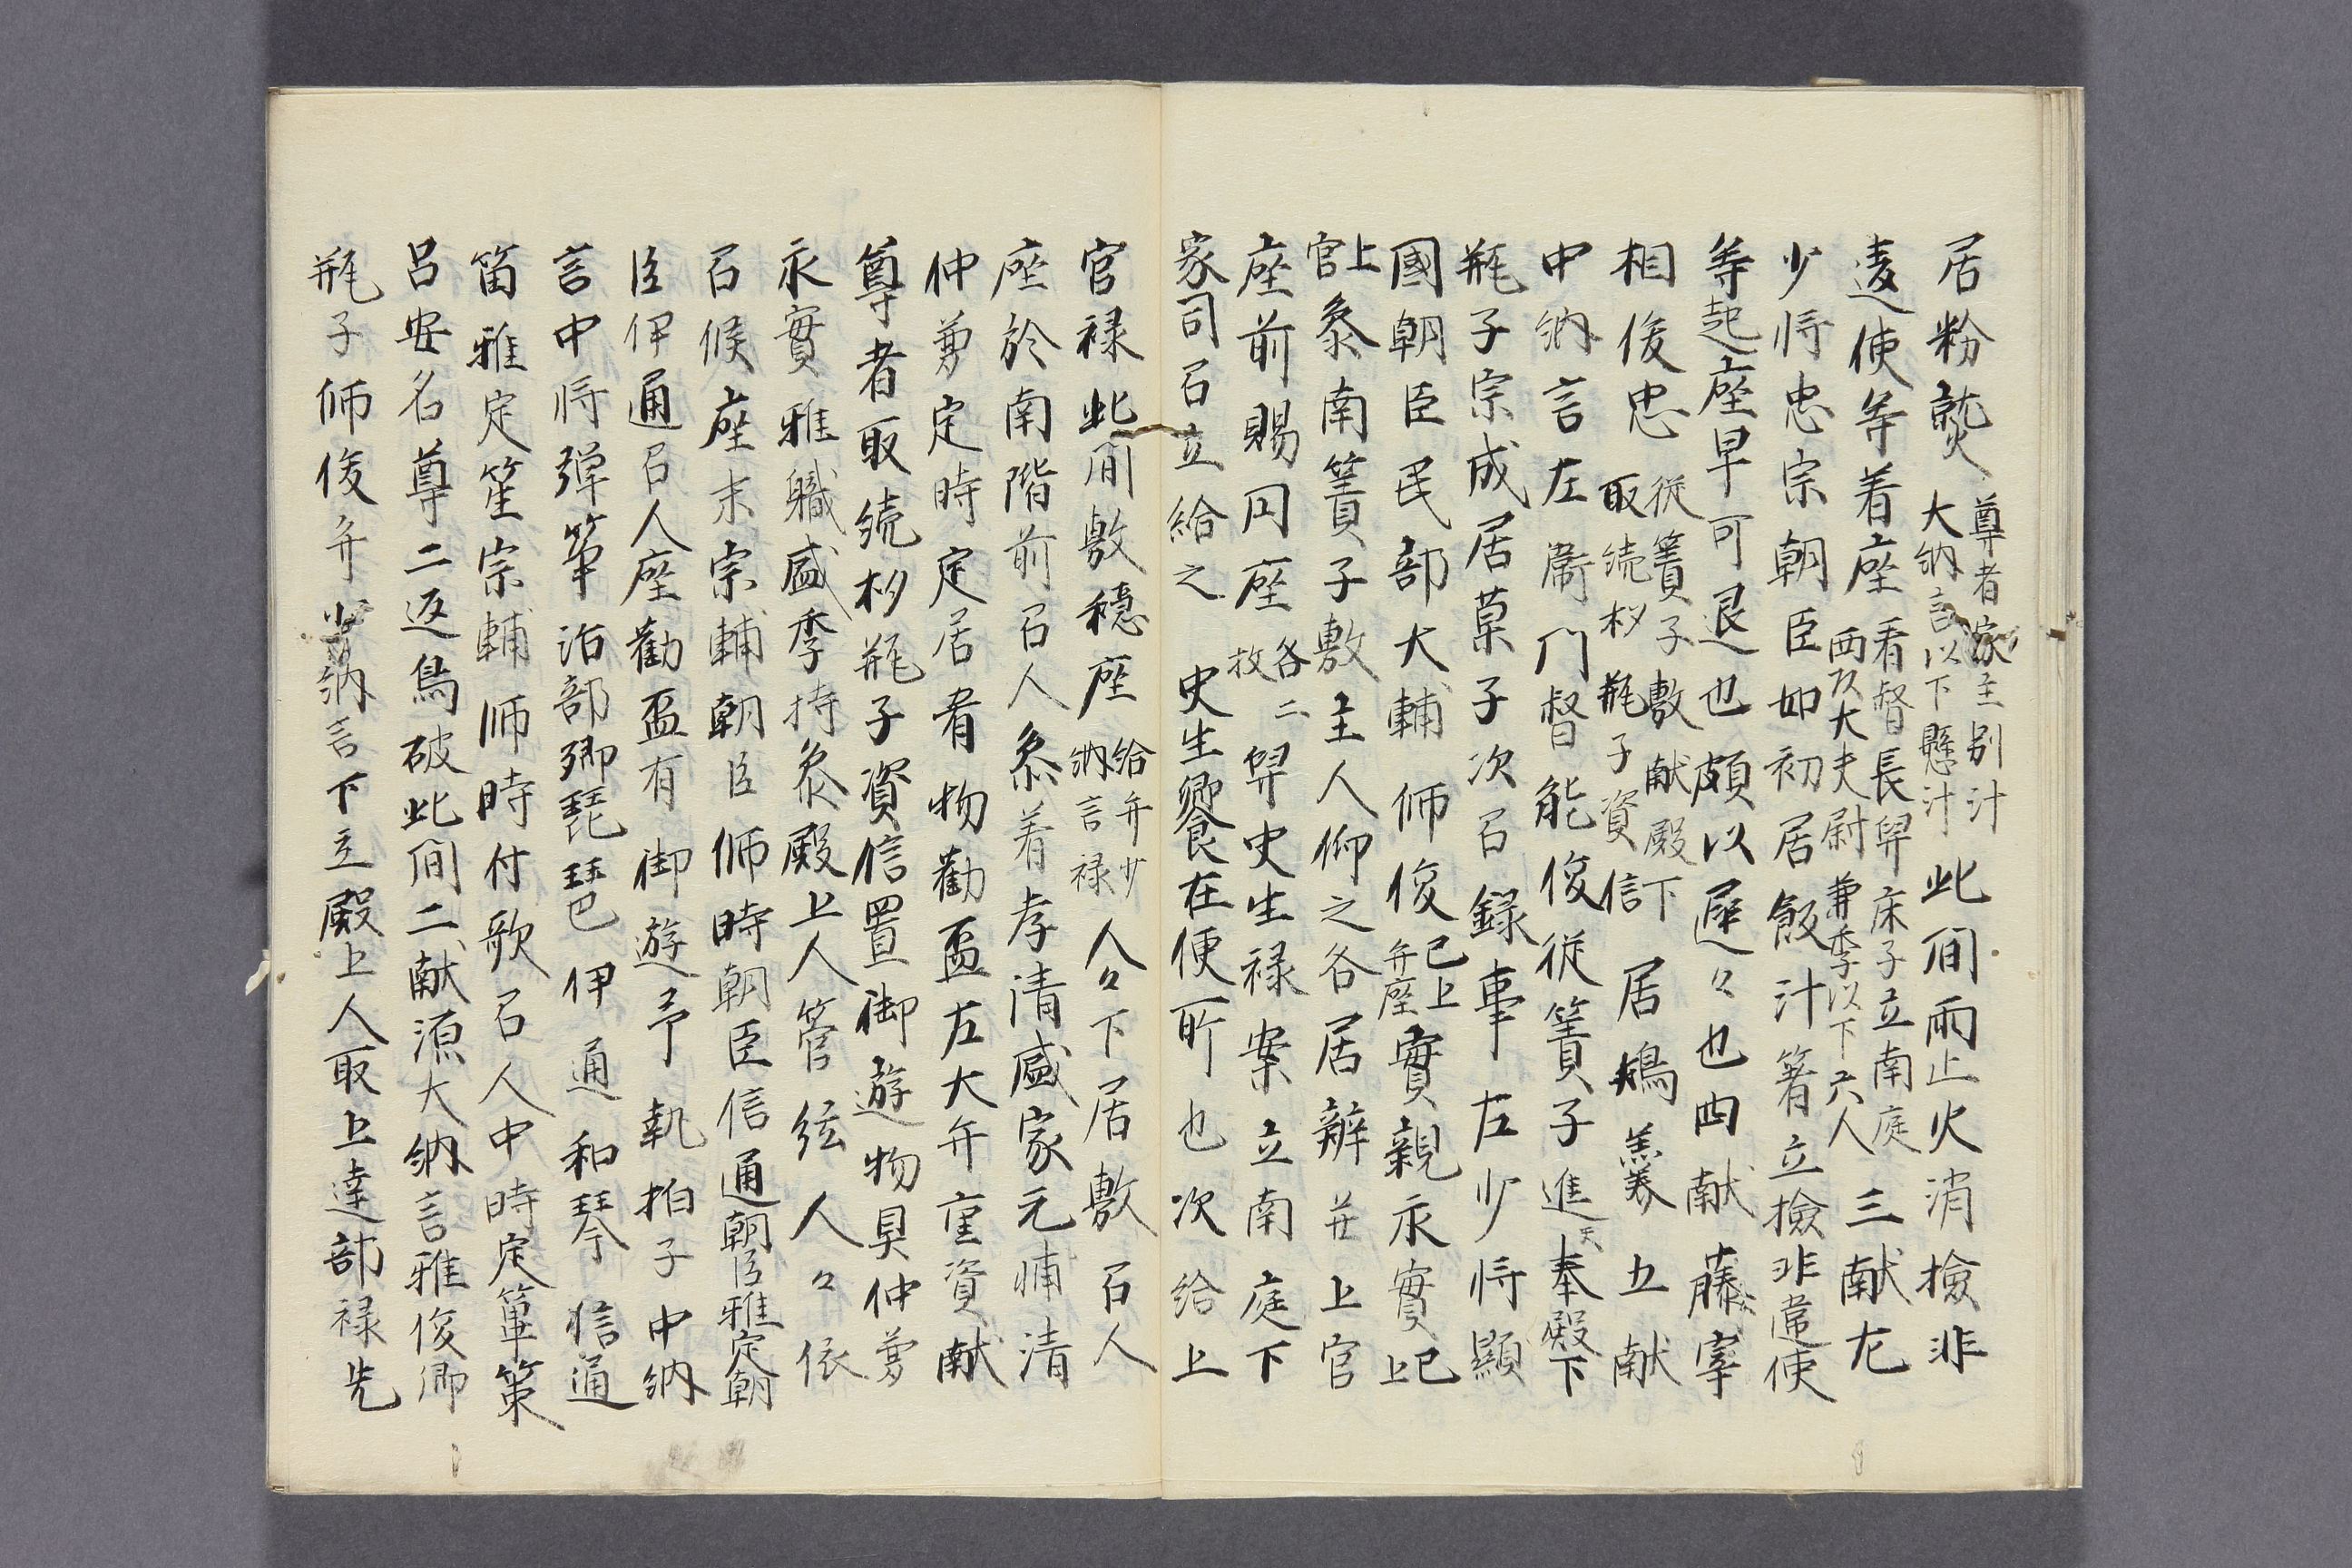 居粉熟尊者家主別汁大納言以下懸汁此间雨止火消撿非
違使等着座看督長舁床子立南庭両政大夫尉兼季以下六人三献左
少将忠宗朝臣如初居飯汁箸立撿非違使
等起座早可退也頗以遅々也四献藤宰
相俊忠従簀子敷献殿下取続杓瓶子資信居鴆羹五献
中納言左衛門督能俊従簀子進天奉殿下
瓶子宗成居菓子次召録事左少将顯
國朝臣民部大輔師俊已上弁座實親永實已上
上官叅南簀子敷主人仰之各居辨并上官
座前賜円座各二枚舁史生禄案立南庭下
家司召立給之 史生饗在便所也次給上
官禄此间敷穏座給弁少納言禄人々下居敷召人
座於南階前召人叅着孝清盛家元輔清
仲兼定時定居肴物勸盃左大弁重資献
尊者取続杓瓶子資信置御遊物具仲兼
永實雅職盛季持叅殿上人管絃人々依
召候座末宗輔朝臣師時朝臣信通朝臣雅定朝
臣伊通召人座勸盃有御遊予執拍子中納
言中将弾筝治部卿琵琶伊通和琴信通
笛雅定笙宗輔師時付歌召人中時定篳篥
呂安名尊二返鳥破此间二献源大納言雅俊卿
瓶子師俊弁少納言下立殿上人取上達部禄先